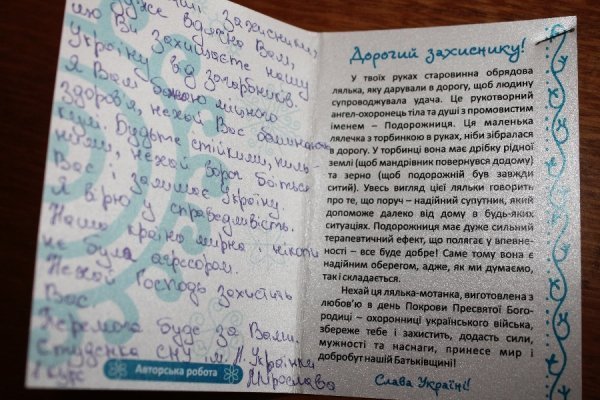 захисники,
Дуже вдячна Вам,
що Ви захищаєте нашу
Україну від загарбників.
Я Вам бажаю міцного
здоров'я, нехай Вас
кулі. Будьте стійкими, пиль-
ними, нехай ворог боїться
Вас і залишає Україну.
Я вірю у справедливість.
Наша країна мирна і ніколи
не була агресором.
Нехай Господь захистить
Вас
Перемога буде за Вами.
Студенка СНУ ім. Л. Українки
1 курс Мирослава
Авторська робота
Дорогий захиснику!
У твоїх руках старовинна обрядова
лялька, яку дарували в дорогу, щоб людину
супроводжувала удача. Це рукотворний
ангел-охоронець тіла та душі з промовистим
іменем – Подорожниця. Ця маленька
лялечка з торбинкою в руках, ніби зібралася
в дорогу. У торбинці вона має дрібку рідної
землі (щоб мандрівник повернувся додому)
та зерно (щоб подорожній був завжди
ситий). Увесь вигляд цієї ляльки говорить
про те, що поруч – надійний супутник, який
допоможе далеко від дому в будь-яких
ситуаціях. Подорожниця має дуже сильний
терапевтичний ефект, що полягає у впевне-
ності – все буде добре! Саме тому вона є
надійним оберегом, адже, як ми думаємо,
так і складається.
Нехай ця лялька-мотанка, виготовлена з
любов'ю в день Покрови Пресвятої Бого-
родиці – охоронниці українського війська,
збереже тебе і захистить, додасть сили,
мужності та наснаги, принесе мир і
добробут нашій Батьківщині!
Слава Україні!